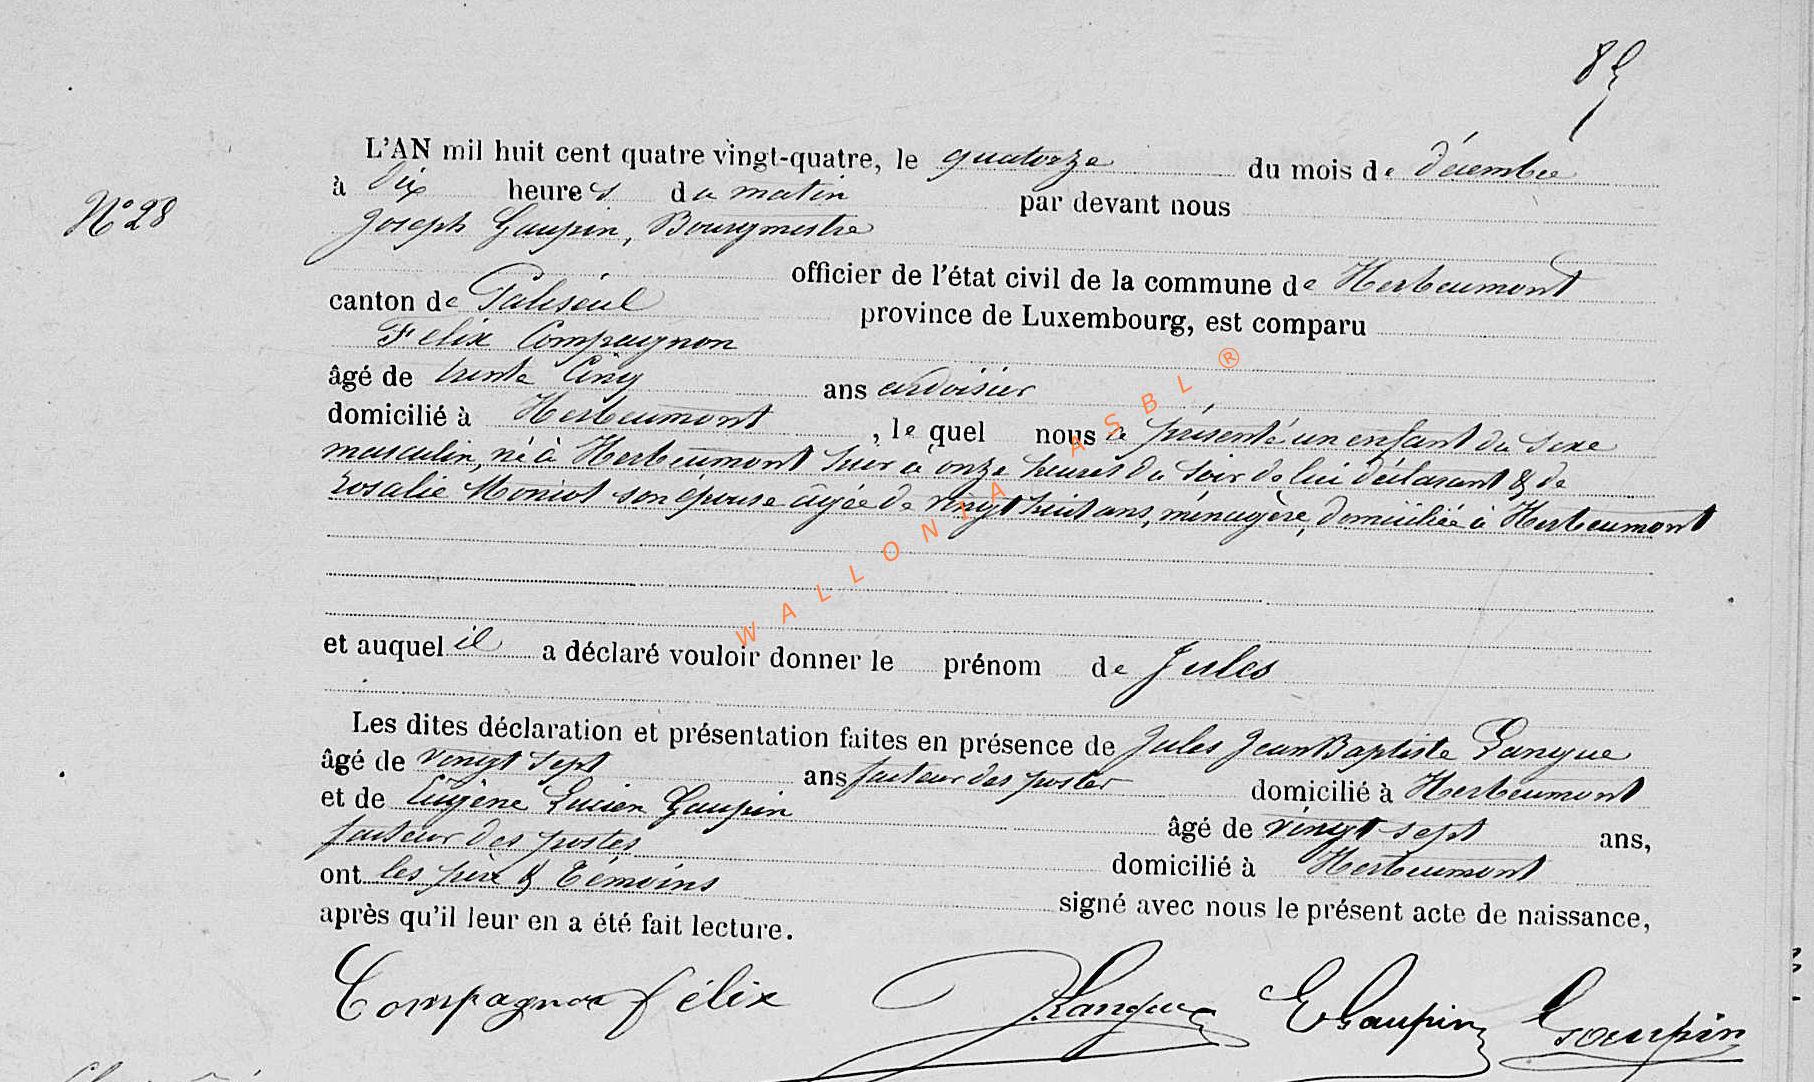 85
L'AN mil huit cent quatre vingt-quatre, le quatorze du mois de décembre
N° 28
à dix heures du matin par devant nous
Joseph Gaupin, Bourgmestre
officier de l'état civil de la commune de Herbeumont
canton de Paliseul province de Luxembourg, est comparu
Felix Compagnon
âgé de trente cinq ans ardoisier
domicilié à Herbeumont, le quel nous a présenté un enfant du sexe
masculin, né à Herbeumont hier à onze heures du soir de lui déclarant & de
Rosalie Moniot son épouse âgée de vingt huit ans, ménagère, domiciliée à Herbeumont
et auquel il a déclaré vouloir donner le prénom de Jules
Les dites déclaration et présentation faites en présence de Jules Jean Baptiste Langue
âgé de vingt sept ans facteur des postes domicilié à Herbeumont
et de Eugène Lucien Gaupin âgé de vingt sept ans,
facteur des postes domicilié à Herbeumont
ont les père & témoins signé avec nous le présent acte de naissance,
après qu'il leur en a été fait lecture.
Compagnon félix Langue E Gaupin Gaupin
WALLONIA ASBL ®